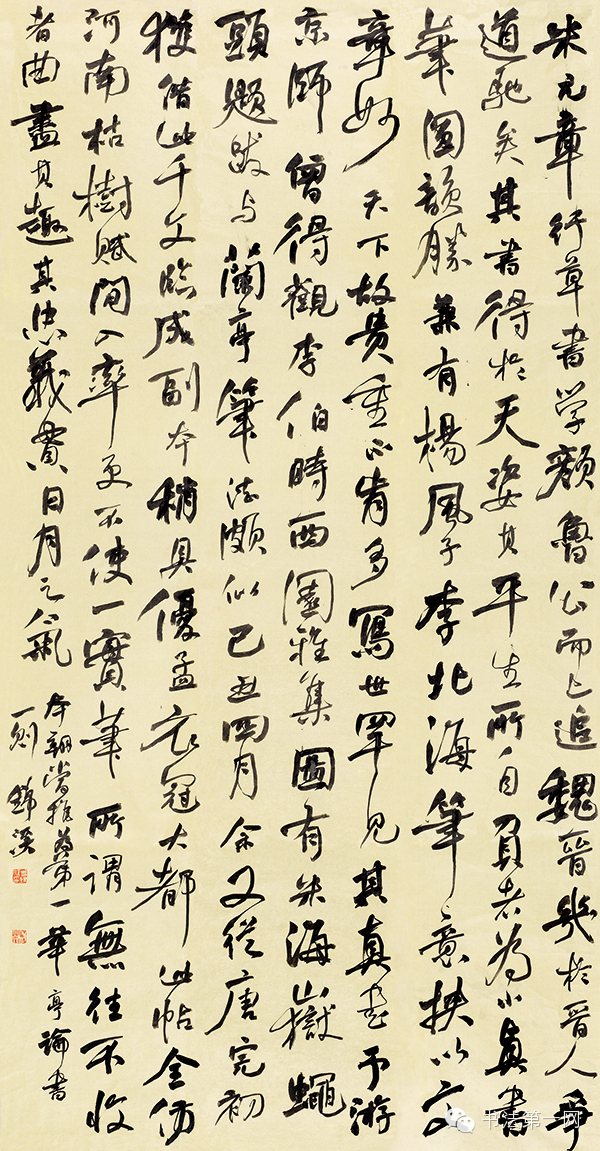 米元章行草書学顔魯公而上追魏晉幾於晋人争
道馳矣其書得於天姿其平生所自負者为小真書
筆圓韻勝兼有楊風子李北海筆意挟以文
章妙天下故贵重不肯多寫世罕见其真書予游
京師曾得觀李伯時西園雅集圖有米海嶽蠅
頭題跋与蘭亭筆法頗似己丑四月余又從唐完初
獲借此千文臨成副本稍具優孟衣冠大都此帖全仿
河南枯樹赋間入率更不使一實筆所谓無往不收
者曲盡其趣其忠義贯日月之氣
本朝當推第一華亭論書
一则 錦溪
书法第一网